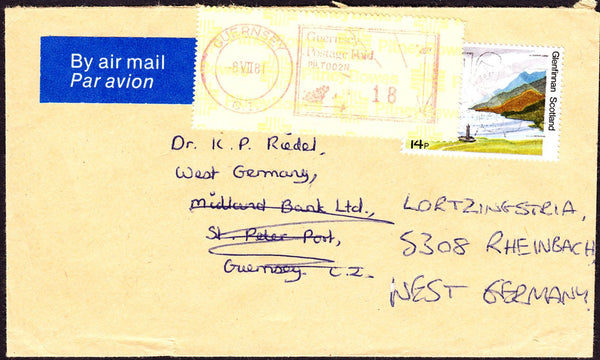 By air mail
Par avion
GUERNSEY
-8VII81
Guernsey
Postage Paid
PB.T002N
18
Glenfinnan Scotland
14P
Dr. K. P. Riedel,
West Germany,
Midland Bank Ltd.,
St. Peter Port,
Guernsey. C.I.
LORTZINGESTRIA,
5308 RHEINBACH
WEST GERMANY